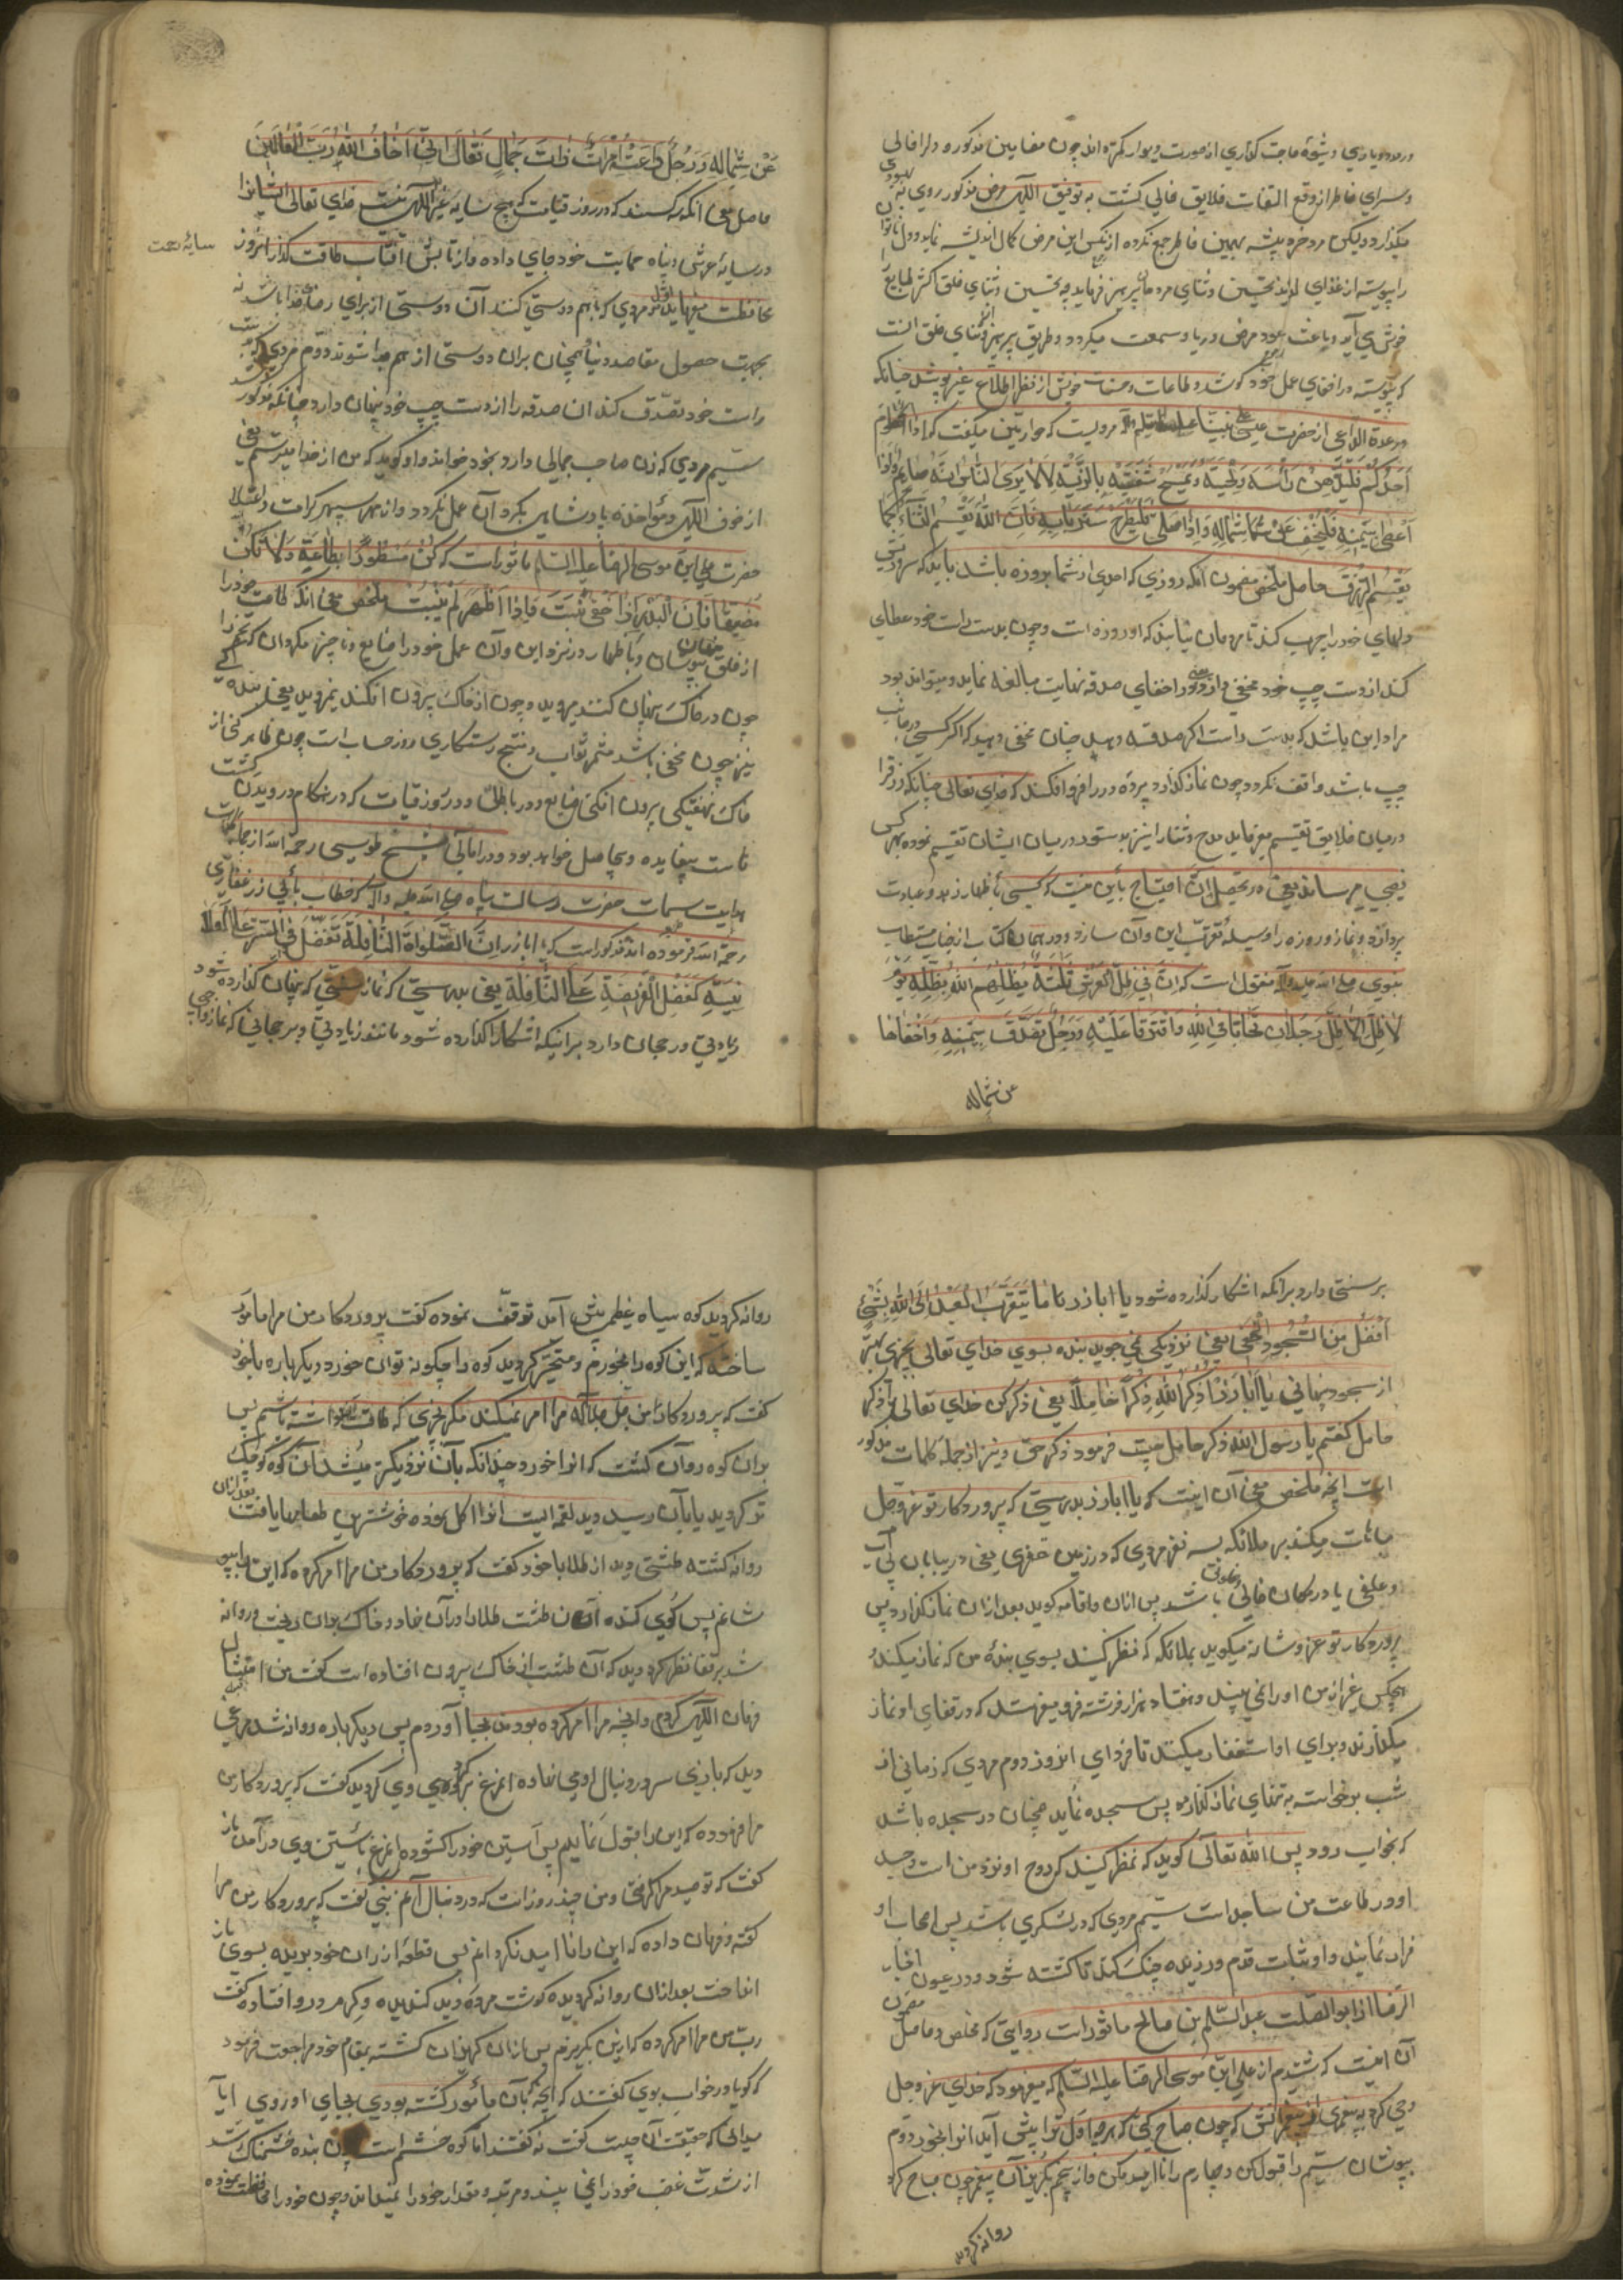 در صورت دیوار گمرته اند چون مضامین مذکوره و لرا فالی
و سرای خاطر از وقع التفات خلایق خالی گشت به توفیق اللهی مرض مذکور روی به
بهبودی
میگذارد و لیکن مرد خرد پیشه بهمین خاطر جمع نکرده از نکس این مرض کمال اندیشه نماید و دل ناتوان
را پیوسته از غذای لذیذ تحسین و ثنای مردمان پرهیز فرماید چه تحسین و ثنای خلق اکثر طبایع
خوش می آید و باعث عود مرض و ریا و سمعت میگردد و طریق پرهیز از ثنای خلق انست
که پیوسته در اخفای عمل خود کوشد و طاعات و حسنات خویش از نظر اطلاع غیر پوشد چنانکه
در عدة الداعی از حضرت عیسی علی نبینا و علیه السلام مرویست که حواریین میگفت که اذا صام
احدکم فلیدهن رأسه و لحیته و یمسح شفتیه بالزیت لئلا یری الناس انه صایم و اذا
اعطی بیمینه فلیخف عن شماله و اذا صلی فلیطرح ستر بابه فان الله یقسم الثناء کما
یقسم الرزق حاصل ملخص مضمون انکه روزی که احدی از شما بروزه باشد باید که سر و ریش
و لبهای خود را چرب کند تا مردمان نیابند که او روزه است و چون بدست راست خود عطای
کند از دست چپ خود مخفی دارد یعنی در اخفای صدقه نهایت مبالغه نماید و میتواند بود
مراد این باشد که بدست راست اگر صدقه دهد چنان مخفی دهد که اگر کسی در جانب
چپ باشد واقف نگردد و چون نماز گذارد پرده در را فرو افکند که خدای تعالی چنانکه رزق را
در میان خلایق تقسیم میفرماید مدح و ثنا را نیز بدستور در میان ایشان تقسیم نموده بهر کس
نصیبی میرساند یعنی در تحصیل آن احتیاج باین نیست که کسی باظهار زهد و عبادت
پردازد و نماز و روزه را وسیله تقرب این و آن سازد و در همان کتاب از جناب مستطاب
نبوی صلی الله علیه و آله منقول است که ان فی ظل العرش ثلثة یظلهم الله بظله یوم
لا ظل الا ظله رجلان تحابا فی الله و افترقا علیه و رجل تصدق بیمینه و اخفاها
عن شماله
عن شماله و رجل دعته امرأت ذات جمال تعال انی اخاف الله رب العالمین
حاصل معنی انکه سه کسند که در روز قیامت که هیچ سایه غیر اللهی نیست خدای تعالی ایشانرا
در سایه عرش و پناه حمایت خود جای داده و از تابش آفتاب طاقت گداز انروز
سایۀ رحمت
محافظت میفرماید اول دو مردی که باهم دوستی کنند آن دوستی از برای رضای خدا باشد نه
بجهت حصول مقاصد دنیا و همچنان بران دوستی از هم جدا شوند دوم مردی که بدست
راست خود تصدق کند ان صدقه را از دست چپ خود پنهان دارد چنانکه مذکور شد
سیم مردی که زن صاحب جمالی دارد بخود خواند و او گوید که من از خدا میترسم یعنی
از خوف اللهی و مؤاخذه پادشاهی بگرد آن عمل نگردد و از مهر سپهر کرامت و اعتلا
حضرت علی ابن موسی الرضا علیه السلام ماثور است که کن مستورا بطاعة و لا تکن
مضیعا فان البذر اذا خفی نبت فاذا اظهر لم ینبت ملخص معنی انکه طاعت خود را
از خلق پنهان و پوشان و باظهار در نزد این و آن عمل خود را ضایع و ناچیز مگردان که تخم را
چون در خاک پنهان کنند بروید و چون از خاک بیرون افکند نمیروید یعنی بندگی
نیز چون مخفی باشد مثمر ثواب و منتج رستگاری روز حساب است چون ظاهر کنی از
خاک نهفتگی بیرون افکنی ضایع و در باطل و در روز قیامت که هنگام درویدن کشت
است بیفایده و بیحاصل خواهد بود و در امالی شیخ طوسی رحمة الله از جمله کلمات
هدایت سمات حضرت رسالت پناه صلی الله علیه و آله که خطاب بابی ذر غفاری
رحمة الله فرموده اند مذکور است که یا اباذر ان الصلوة النافلة تفضل فی السر علی العلا
نیة کفضل الفریضة علی النافلة یعنی بدرستی که نماز سنتی که پنهان گذارده شود
زیادتی و رجحان دارد برانیکه آشکارا گذارده شود مانند زیادتی و رجحانی که نماز واجبی
بر سنتی دارد برانکه اشکار گذارده شود یا اباذر ما یتقرب العبد الی الله بشئ
افضل من السجود الخفی یعنی نزدیکی نمی جوید بنده بسوی خدای تعالی بچیزی بهتر
از سجود پنهانی یا اباذر اذکر الله ذکرا خاملا یعنی ذکر کن خدای تعالی را ذکر
خامل گفتم یا رسول الله ذکر خامل چیست فرمود ذکر خفی و نیز از جمله کلمات مذکور
است انچه ملخص معنی آن اینست که یا اباذر بدرستی که پروردگار تو عز و جل
مباهات میکند بر ملائکه بسه نفر مردی که در زمین قفری یعنی در بیابان بی آب
و علفی یا در مکان خالی مخوف باشد پس اذان و اقامه گوید بعد از ان نماز گذارد پس
پروردگار تو عز و شانه میگوید بملائکه که نظر کنید بسوی بندۀ من که نماز میکند و
هیچکس غیر از من او را نمی بیند و هفتاد هزار فرشته فرو میفرستد که در قفای او نماز
میگذارند و برای او استغفار میکنند تا فردای انروز دوم مردی که زمانی از
شب برخواست به تنهای نماز گذارده پس سجده نماید همچنان در سجده باشد
که بخواب رود پس الله تعالی گوید که نظر کنید که روح او نزد من است و جسد
او در طاعت من ساجد است سیم مردی که در لشکری باشد پس اصحاب او
فرار نمایند و او ثبات قدم ورزیده جنگ کند تا کشته شود و در عیون اخبار
الرضا از ابو الصلت عبد السلام بن صالح ماثور است روایتی که ملخص و حاصل مضمون
آن اینست که شنیدم از علی ابن موسی الرضا علیه السلام که میفرمود که خدای عز و جل
وحی کرد به پیغمبری از پیغمبرانش که چون صباح کنی که هرچه اول ترا پیش آید انرا بخور و دوم
بپوشان سیم را قبول کن و چهارم را ناامید مکن و از پنجم بگریز آن پیغمبر چون صباح کرد
روانه گردید
روانه گردید کوه سیاه عظیمی پیش آمد توقف نموده گفت پروردگار من مرا مامور
ساخته که این کوه را بخورم و متحیر گردید کوه را چگونه توان خورد و دیگرباره با خود
گفت که پروردگار من جل جلاله مرا امر نمیکند مگر بچیزی که طاقت انرا داشته باشم پس
بدان کوه روان گشت که انرا خورد چندانکه بآن نزدیکتر میشد آن کوه کوچک
تر گردید یا بآن رسید دید لقمه ایست انرا اکل نموده خوشترین طعامها یافت بعد ازان
روانه گشته طشتی دید از طلا با خود گفت که پروردگار من مرا امر کرده که این را بپو
شانم پس گوی کنده آن طشت طلا را در آن نهاد و خاک بران ریخت و روانه
شد بر قفا نظر کرد دید که آن طشت از خاک بیرون افتاده است گفت من امتثال
فرمان اللهی کردم و انچه مرا امر کرده بود من بجا آوردم پس دیگر باره روانه شد مرغی
دید که بازی سر در دنبال او می نهاده انمرغ برگرد وی گردید گفت که پروردگار من
مرا فرموده که این را قبول نمایم پس آستین خود را گشوده انمرغ باستین وی درآمد باز
گفت که تو صید مرا گرفتی و من چند روز است که در دنبال آنم نبی گفت که پروردگار من مرا
گفته و فرمان داده که این را ناامید نگردانم پس قطعۀ از ران خود بریده بسوی باز
انداخت بعد ازان روانه گردیده گوشت مرده دید گندیده و کرم در و افتاده گفت
رب من مرا امر کرده که ازین بگریزم پس ازان گریزان گشته بمقام خود مراجعت فرمود
که گویا در خواب بوی گفتند که انچه بآن مأمور گشته بودی بجای آوردی ایا
میدانی که حقیقت آن چیست گفت نه گفتند اما کوه خشم است چون بنده خشمناک شد
از شدت غضب خود را نمی بیند و مرتبه و مقدار خود را نمیداند و چون خود را محافظت نموده